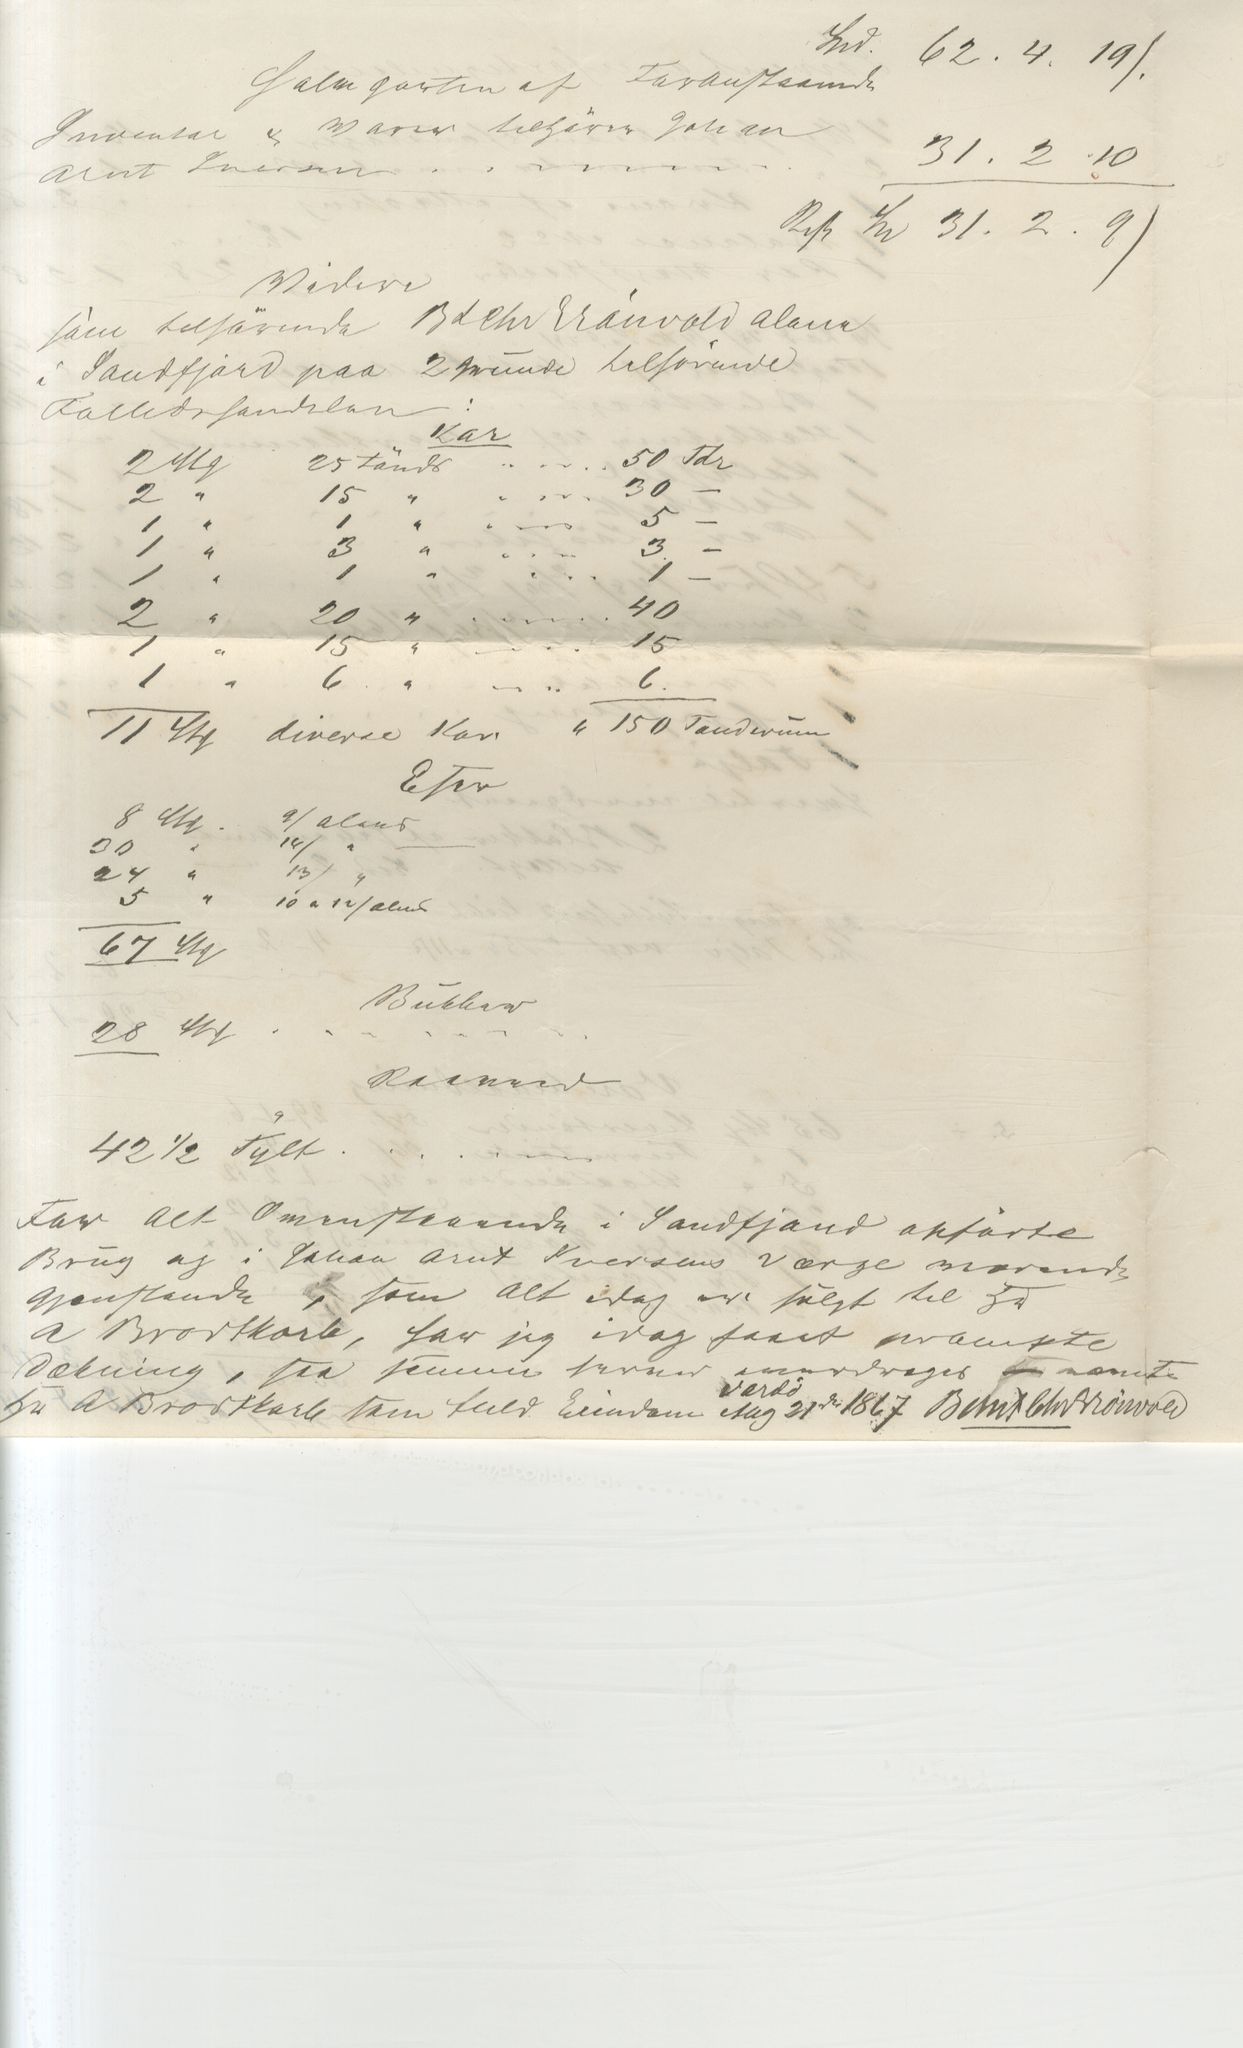 Spd. 62. 4. 19/.
Halvparten af Foranstaaende
Inventar & Varer tilhører Johan
Arnt Iversen . . . . . . 31. 2. 10
Rest Spd 31. 2. 9/
Videre
som tilhørende Bt Chr Grönvold alene
i Sandfjord paa 2 tilhörende
Fælledshandelen:
Kar
2 Stk 25 Tönds . . . 50 Tdr
2 " 15 " . . . 30 —
1 " 1 " . . . 5 —
1 " 3 " . . . 3 —
1 " 1 " . . . 1 —
2 " 20 " . . . 40
1 " 15 " . . . 15
1 " 6 " . . . 6
11 Stk diverse Kar " 150 Tönderum
Eser
8 Stk. 9/ alens
30 " 14/ "
24 " 13/ "
5 " 10 a 12/ alens
67 Stk
Bukker
28 Stk . . . . . .
Raaved
42 1/2 Tylt . . . . . .
For Alt Ovenstaaende i Sandfjord opförte
Brug og i Johan Arnt Iversens Værge værende
Gjenstande, som Alt idag er solgt til Hr
A Brodtkorb, har jeg idag faaet
Dækning, saa samme herved overdrages nævnte
Hr A Brodtkorb som fuld Eiendom
Vardö
Aug 21de 1867 Bernt Chr Grönvold